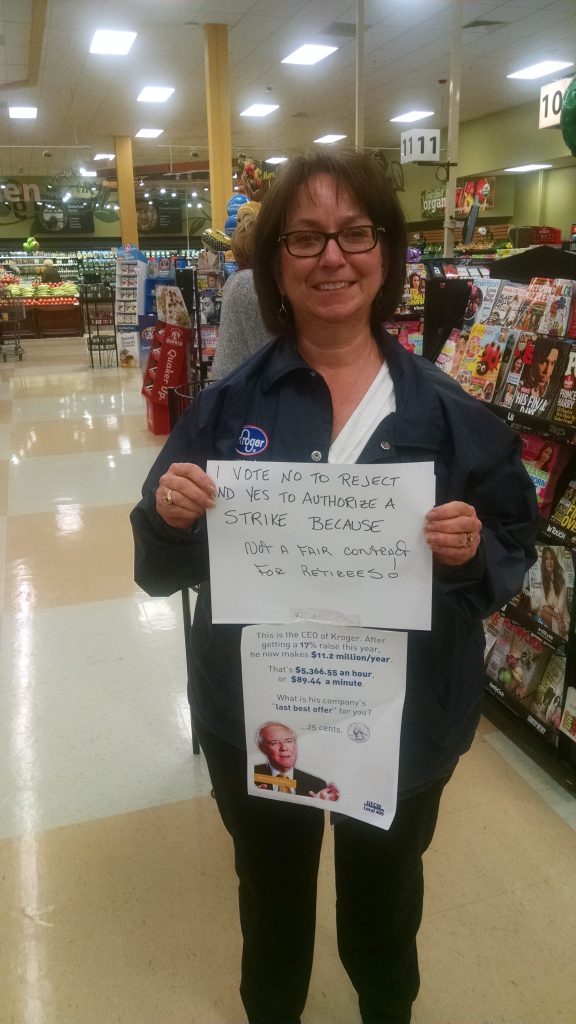 10
11 11
organ
Quaker Up
Kroger
HIS FINAL
InTouch
I VOTE NO TO REJECT
AND YES TO AUTHORIZE A
STRIKE BECAUSE
NOT A FAIR CONTRACT
FOR RETIREES!
This is the CEO of Kroger. After
getting a 17% raise this year,
he now makes $11.2 million/year.
That's $5,366.55 an hour,
or $89.44 a minute.
What is his company's
"last best offer" for you?
...25 cents.
UFCW
Local 400